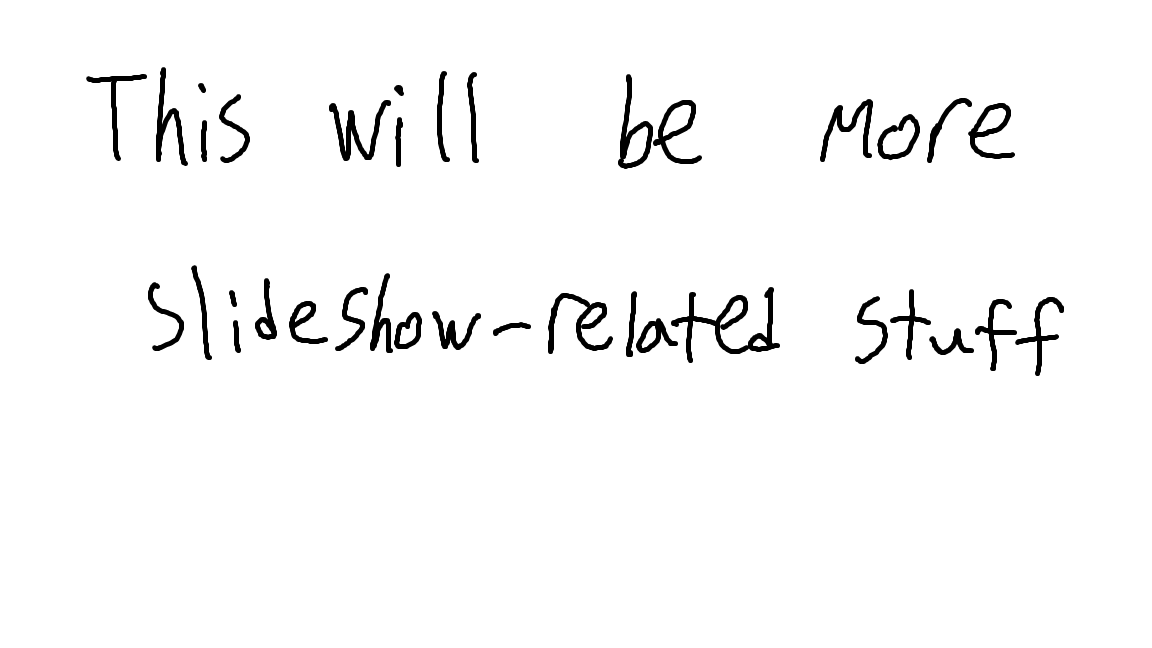 This will be more
slideshow-related stuff